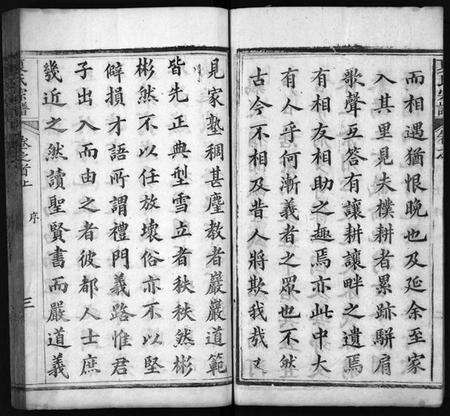 而相遇猶恨晚也及延余至家
入其里見夫樸耕者累跡駢肩
歌聲互答有讓耕讓畔之遺焉
有相友相助之趣焉亦此中大
有人乎何漸義者之眾也不然
古今不相及昔人將欺我哉又
見家塾稠甚塵教者嚴嚴道範
皆先正典型雪立者秩秩然彬
彬然不以任放壞俗亦不以堅
僻損才語所謂禮門義路惟君
子出入而由之者彼都人士庶
幾近之然讀聖賢書而嚴道義
序
三